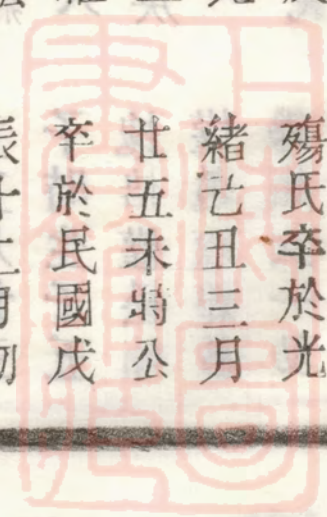 殤氏卒於光
緒乙丑三月
廿五未時公
卒於民國戊
辰十二月初